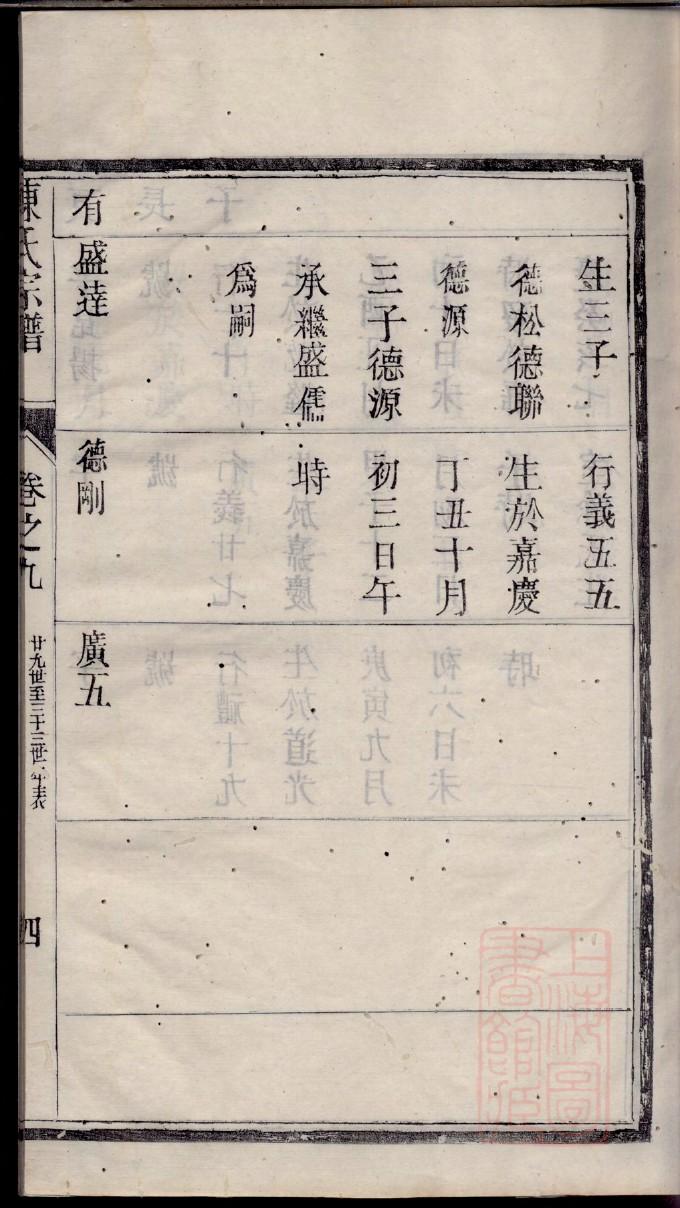 生三子
德松德聯
德源
三子德源
承繼盛儒
爲嗣
行義五五
生於嘉慶
丁丑十月
初三日午
時
有
盛逹
德剛
廣五
陳氏宗譜
卷之九
廿九世至三十三世年表
四
上海圖書館藏